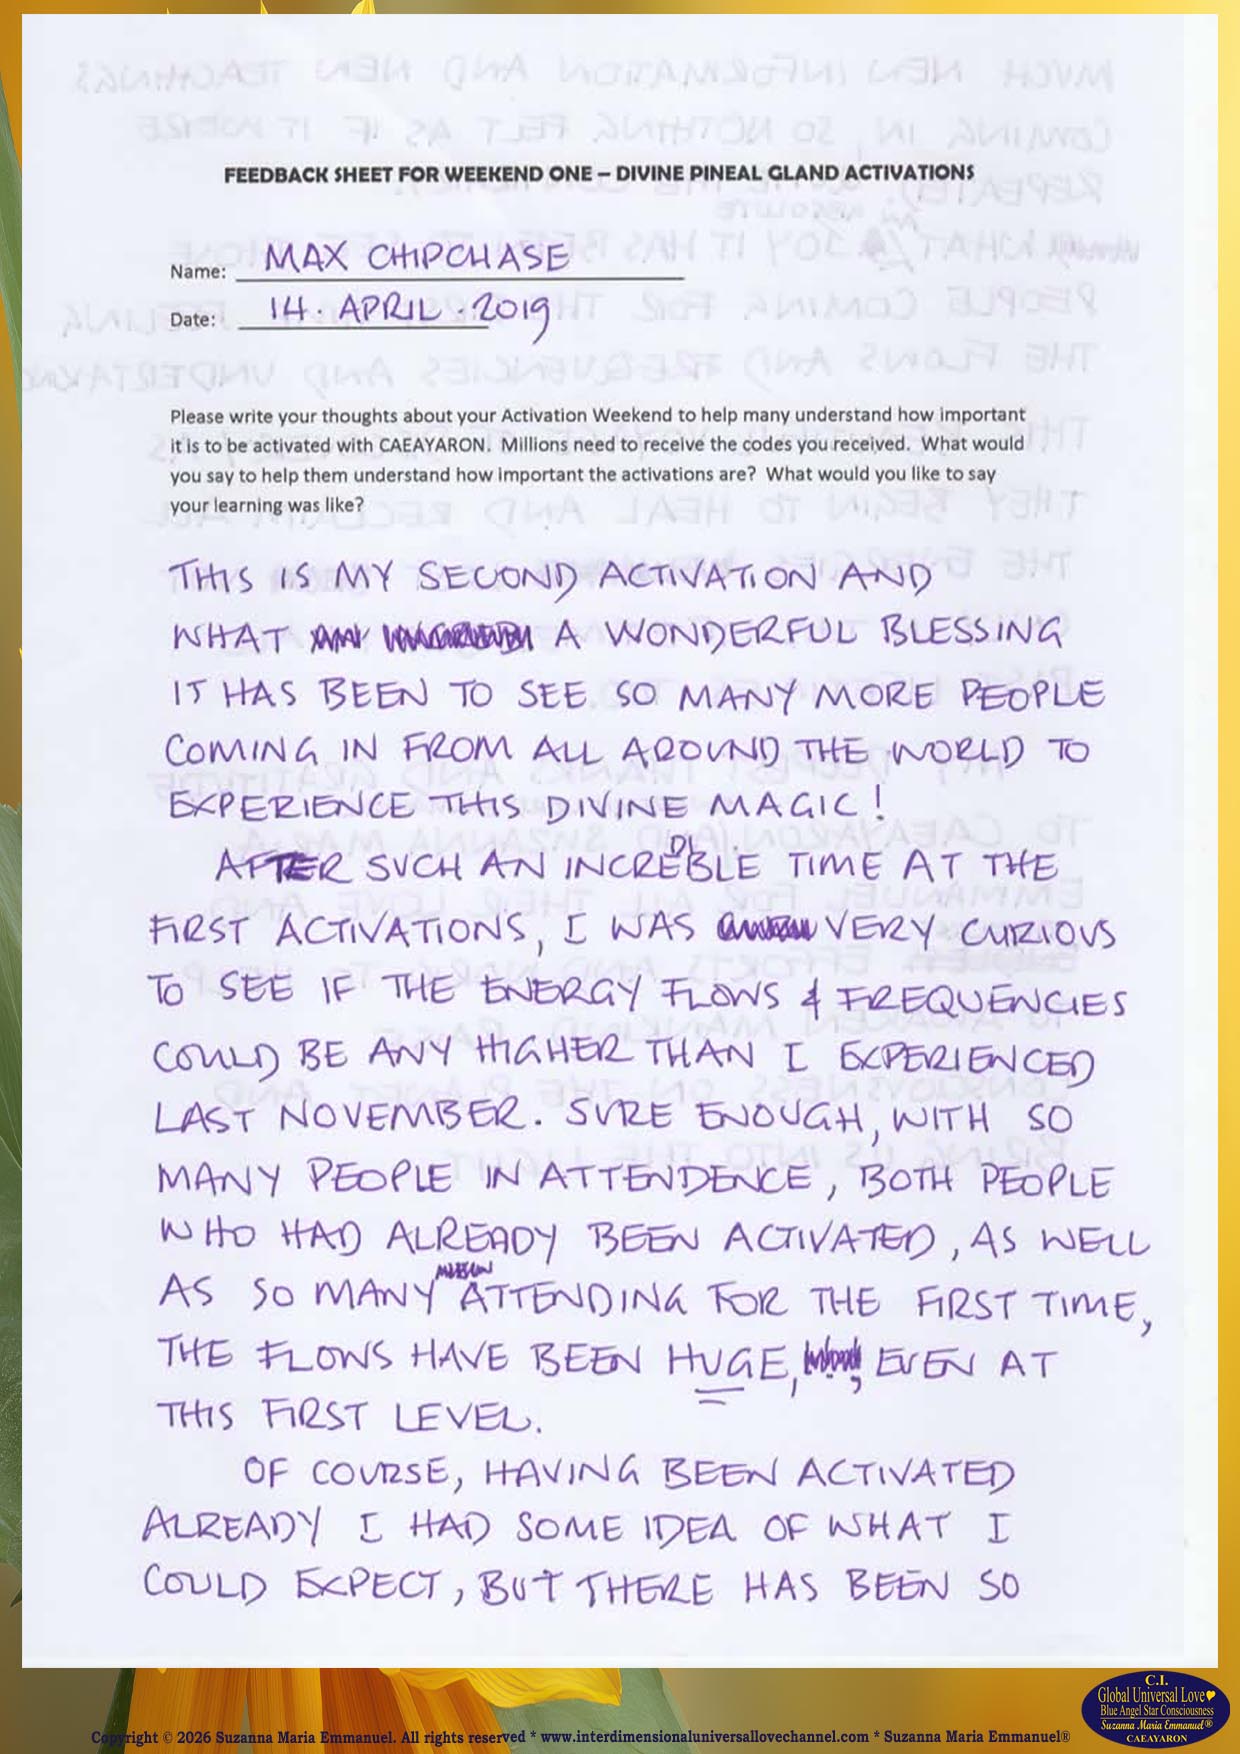 FEEDBACK SHEET FOR WEEKEND ONE – DIVINE PINEAL GLAND ACTIVATIONS
Name: MAX CHIPCHASE
Date: 14. APRIL. 2019
Please write your thoughts about your Activation Weekend to help many understand how important
it is to be activated with CAEAYARON. Millions need to receive the codes you received. What would
you say to help them understand how important the activations are? What would you like to say
your learning was like?
THIS IS MY SECOND ACTIVATION AND
WHAT A WONDERFUL BLESSING
IT HAS BEEN TO SEE SO MANY MORE PEOPLE
COMING IN FROM ALL AROUND THE WORLD TO
EXPERIENCE THIS DIVINE MAGIC!
AFTER SUCH AN INCREDIBLE TIME AT THE
FIRST ACTIVATIONS, I WAS VERY CURIOUS
TO SEE IF THE ENERGY FLOWS & FREQUENCIES
COULD BE ANY HIGHER THAN I EXPERIENCED
LAST NOVEMBER. SURE ENOUGH, WITH SO
MANY PEOPLE IN ATTENDENCE, BOTH PEOPLE
WHO HAD ALREADY BEEN ACTIVATED, AS WELL
AS SO MANY ATTENDING FOR THE FIRST TIME,
THE FLOWS HAVE BEEN HUGE, EVEN AT
THIS FIRST LEVEL.
OF COURSE, HAVING BEEN ACTIVATED
ALREADY I HAD SOME IDEA OF WHAT I
COULD EXPECT, BUT THERE HAS BEEN SO
C.I.
Global Universal Love
Blue Angel Star Consciousness
Suzanna Maria Emmanuel®
CAEAYARON
Copyright © 2026 Suzanna Maria Emmanuel. All rights reserved * www.interdimensionaluniversallovechannel.com * Suzanna Maria Emmanuel®